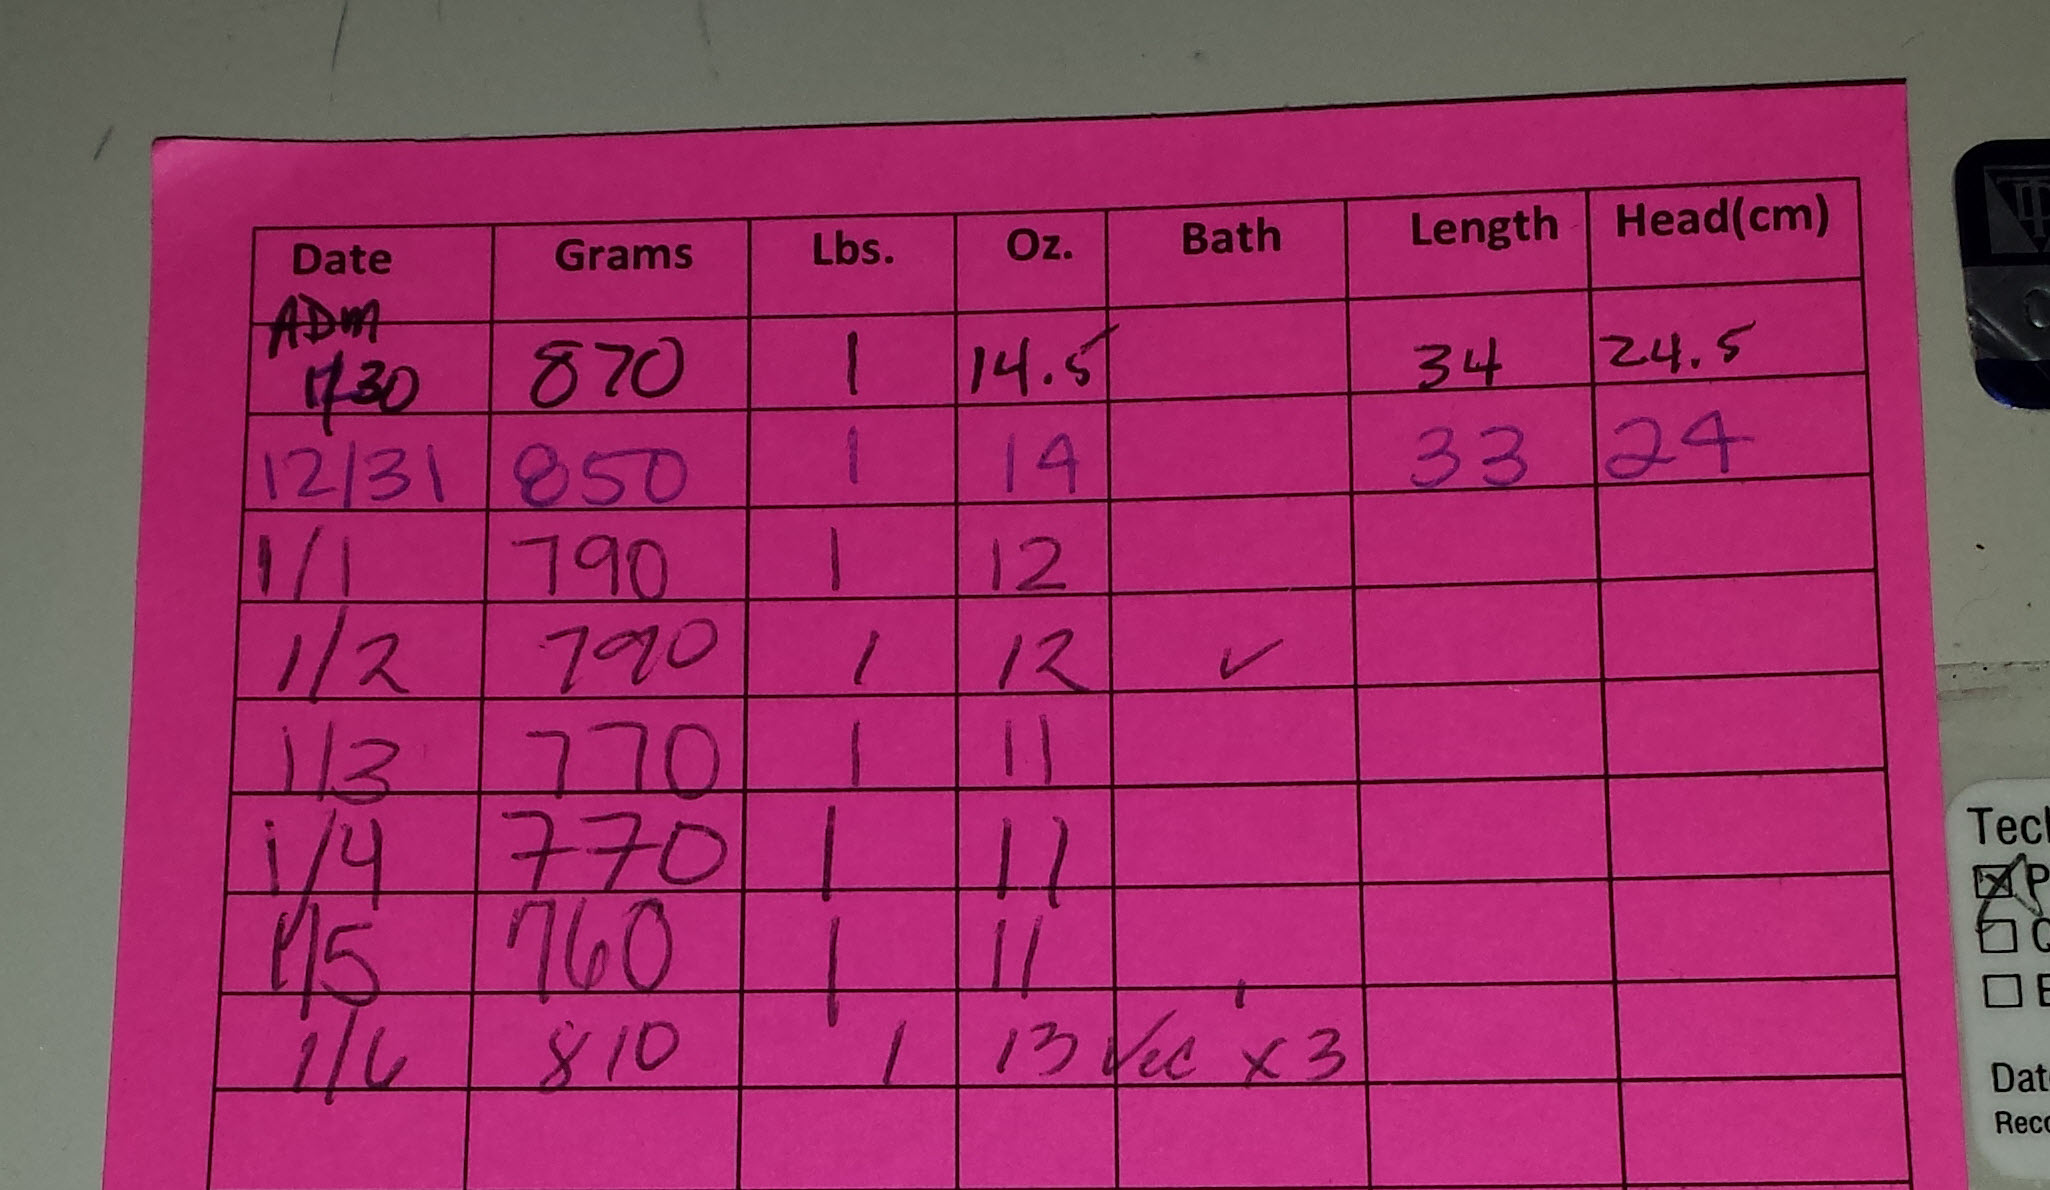 Date Grams Lbs. Oz. Bath Length Head(cm)
ADM
870 1 14.5 34 24.5
12/31 850 1 14 33 24
1/1 790 1 12
1/2 790 1 12 ✓
1/3 770 1 11
1/4 770 1 11
1/5 760 1 11
1/6 810 1 13 x3
Date